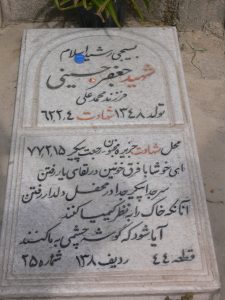 بسیجی رشید اسلام
شهید جعفر حسینی
فرزند محمدعلی
تولد ۱۳۴۸ شهادت ۶۲٫۲٫۴
محل شهادت جزیره مجنون رجعت پیکر ۷۷٫۲٫۱۵
ای خوشا با فرق خونین در لقای یار رفتن
سر جدا پیکر جدا در محفل دلدار رفتن
آنانکه خاک را بنظر کیمیا کنند
آیا شود که گوشه چشمی به ما کنند
قطعه ۴۴ ردیف ۱۳۸ شماره ۲۵